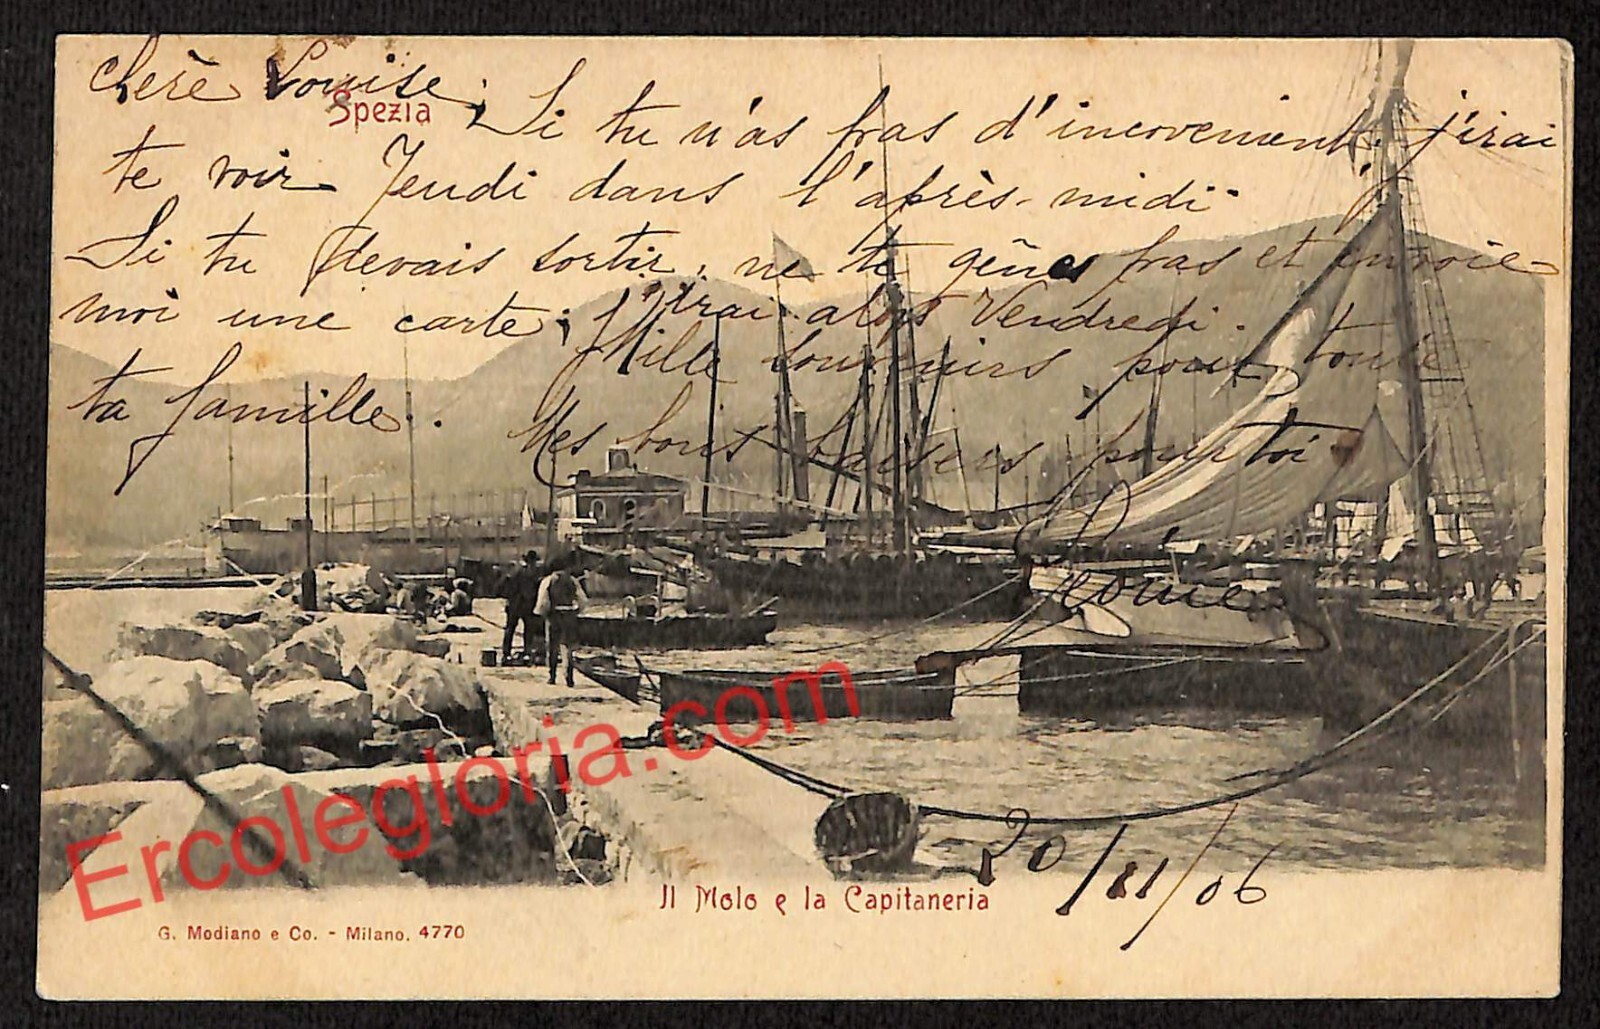 chère Louise,
Spezia
Si tu n'as pas d'inconvenient, j'irai
te voir Jeudi dans l'après-midi.
Si tu devais sortir, ne te gênes pas et envoie-
moi une carte; j'irai alors Vendredi.
Mille souvenirs pour toute
ta famille.
Mes bons baisers pour toi
20/11/06
Il Molo e la Capitaneria
G. Modiano e Co. - Milano. 4770
Ercolegloria.com